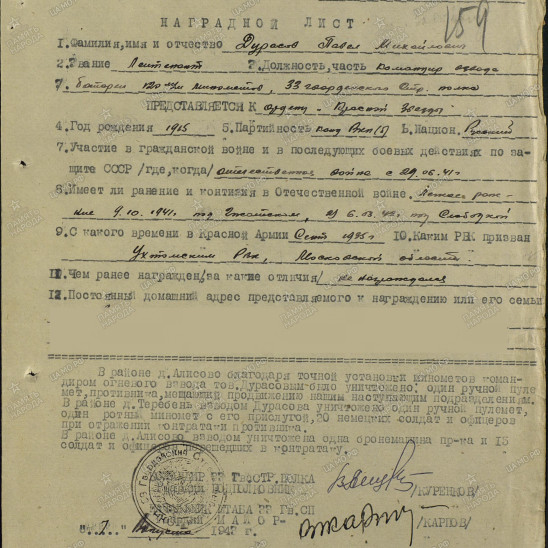 159
НАГРАДНОЙ ЛИСТ
1. Фамилия, имя и отчество Дурасов Павел Михайлович
2. Звание Лейтенант 3. Должность, часть Командир взвода
батареи 120 м/м минометов, 33 гвардейского Стр. полка
ПРЕДСТАВЛЯЕТСЯ К ордену "Красной Звезды"
4. Год рождения 1905 5. Партийность канд ВКП(б) 6. Национ. Русский
7. Участие в гражданской войне и в последующих боевых действиях по за-
щите СССР /где, когда/ отечественная война с 29.06.41г
8. Имеет ли ранение и контузия в Отечественной войне. Легкое ране-
ние 9.10.1941. под Гжатском, 6.03.42г под Слободкой
9. С какого времени в Красной Армии 10. Каким РВК призван
Ухтомским РВК, Московской области
11. Чем ранее награжден/за какие отличия/ не награждался
12. Постоянный домашний адрес представляемого к награждению или его семьи
В районе д. Алисово благодаря точной установки минометов коман-
диром огневого взвода тов. Дурасовым было уничтожено: один ручной пуле
мет, противника, мешающий продвижению нашим наступающим подразделениям.
В районе д. Теребень взводом Дурасова уничтожено один ручной пулемет,
один ротный миномет с его прислугой, 20 немецких солдат и офицеров
при отражении контратаки противника.
В районе д. Алисово взводом уничтожена одна бронемашина пр-ка и 15
солдат и офицеров перешедших в контратаку.
КОМАНДИР 33 ГВ. СТР. ПОЛКА
ПОДПОЛКОВНИК /КУРЕНКОВ/
НАЧАЛЬНИК ШТАБА 33 ГВ. СП
МАЙОР- /КАРПОВ/
"7" Августа 1942 г.